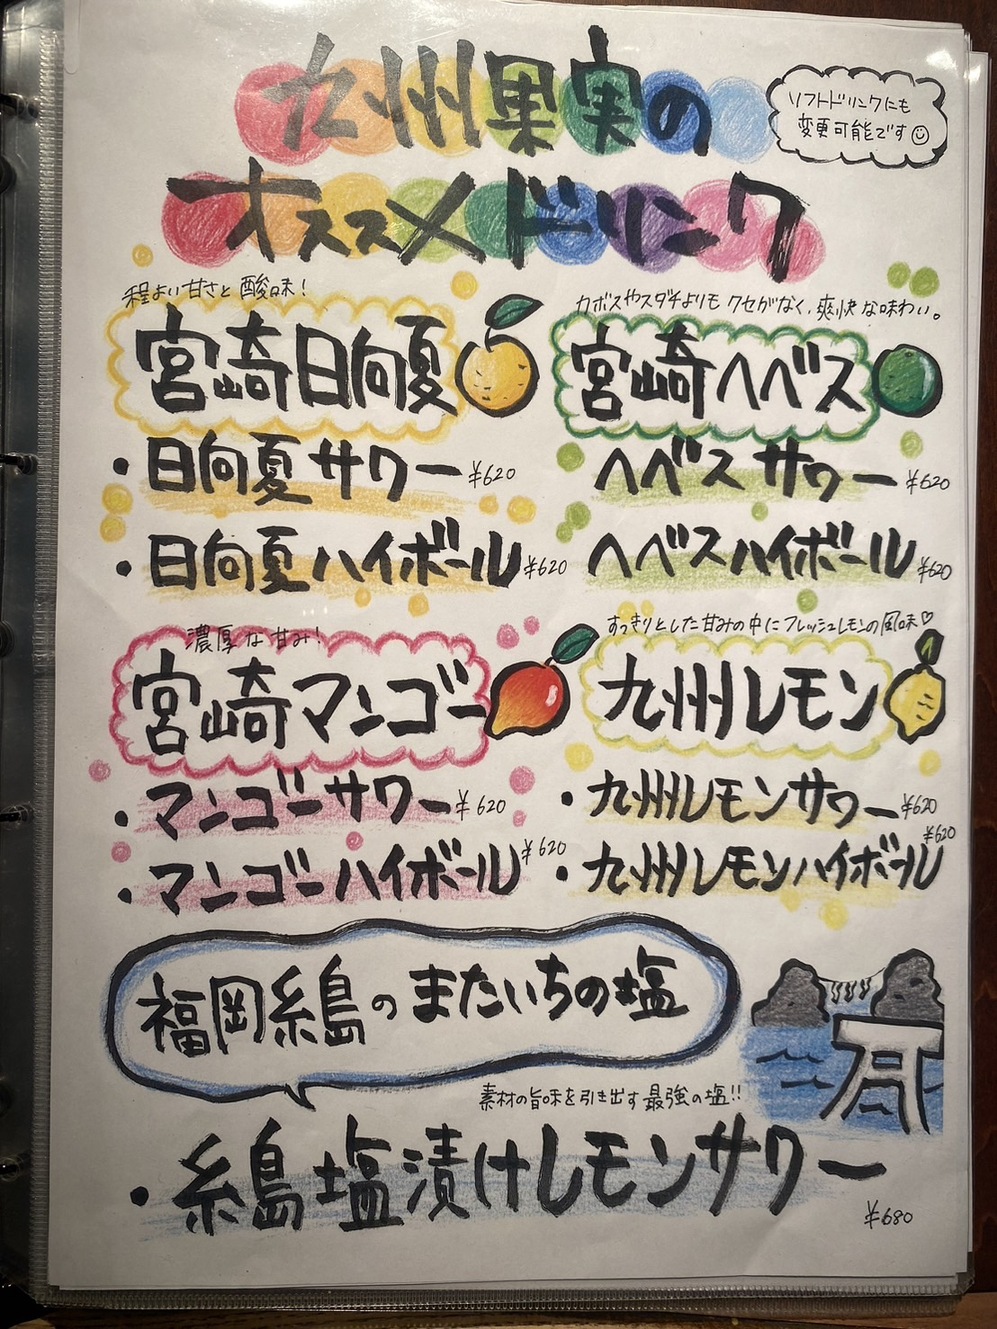 九州果実の
オススメドリンク
ソフトドリンクにも
変更可能です
程よい甘さと酸味！
宮崎日向夏
・日向夏サワー ¥620
・日向夏ハイボール ¥620
カボスやスダチよりもクセがなく、爽快な味わい。
宮崎ヘベス
ヘベスサワー ¥620
ヘベスハイボール ¥620
濃厚な甘み！
宮崎マンゴー
・マンゴーサワー ¥620
・マンゴーハイボール ¥620
すっきりとした甘みの中にフレッシュレモンの風味♡
九州レモン
・九州レモンサワー ¥620
・九州レモンハイボール ¥620
福岡糸島のまたいちの塩
素材の旨味を引き出す最強の塩!!
・糸島塩漬けレモンサワー
¥680